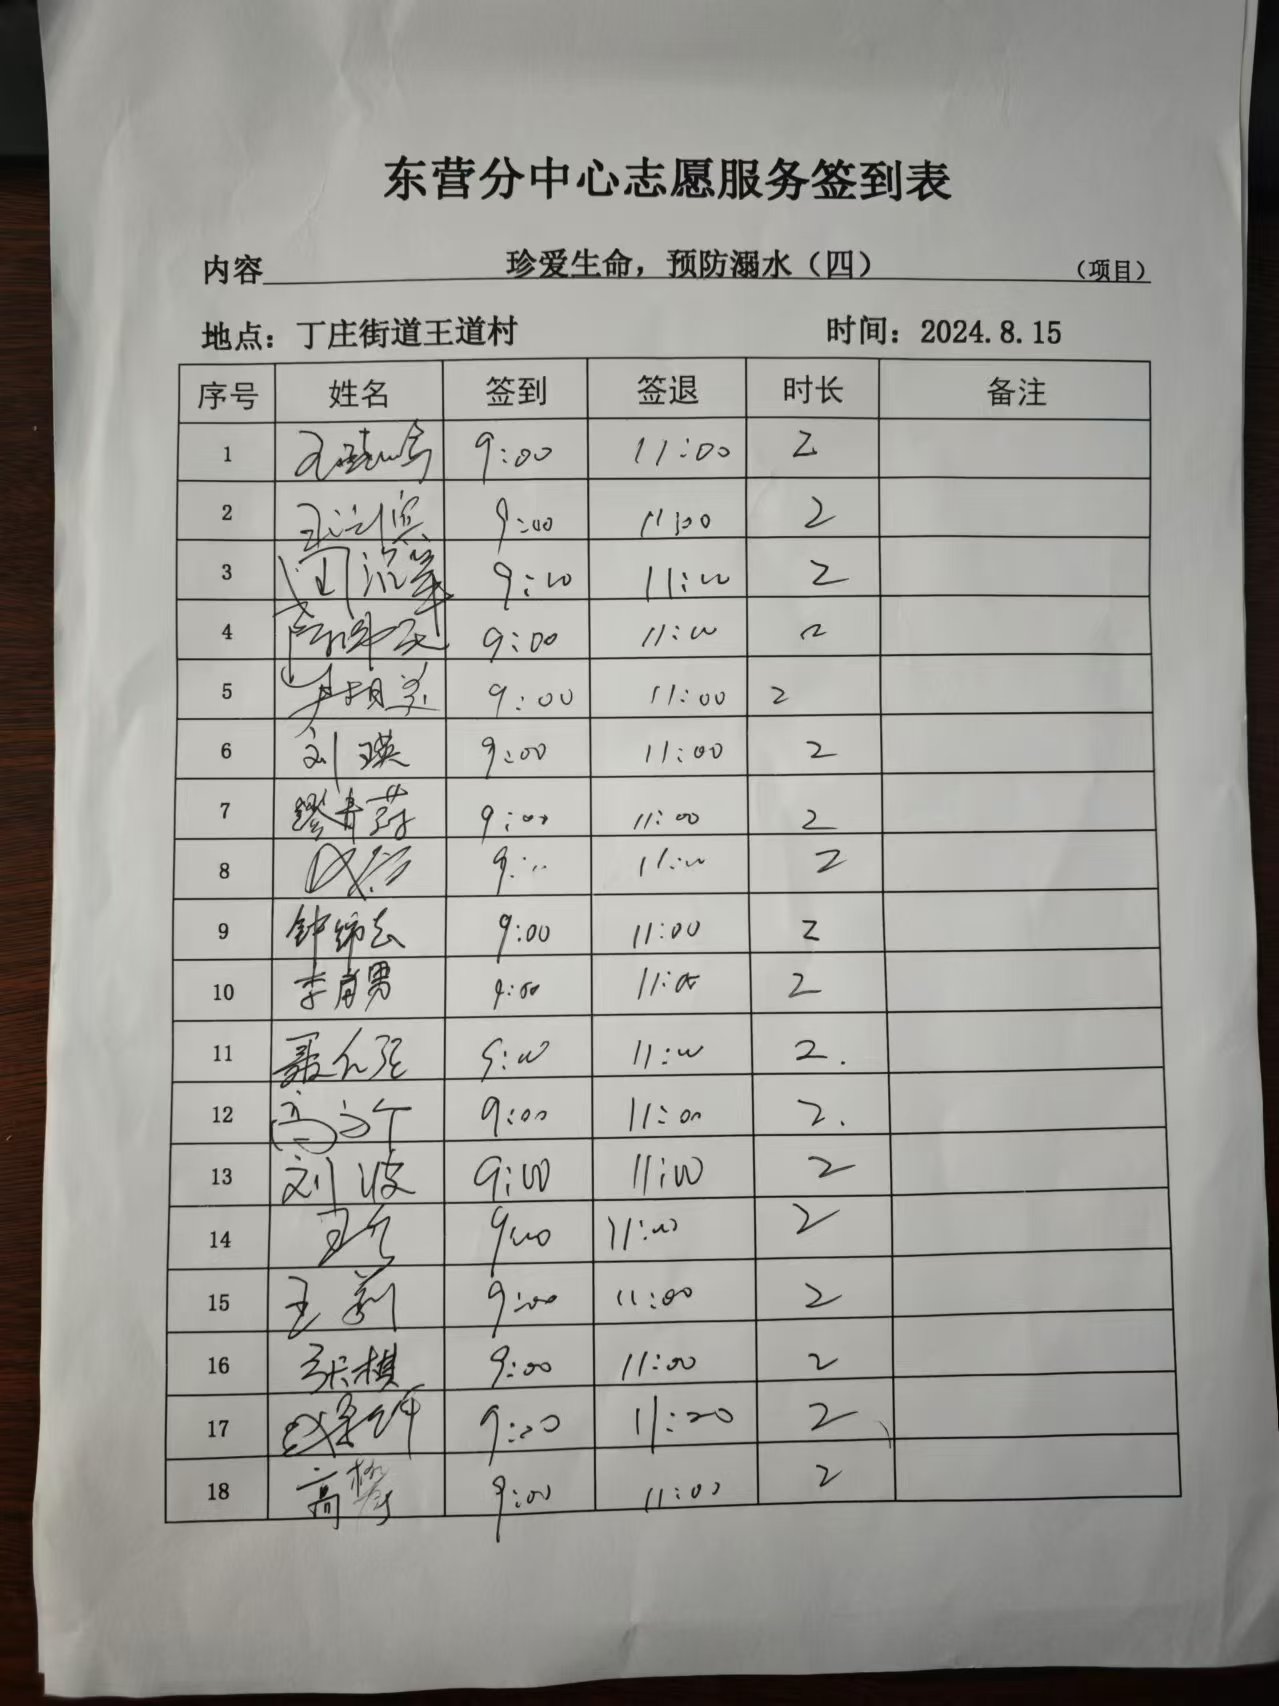 东营分中心志愿服务签到表
内容 珍爱生命，预防溺水（四） （项目）
地点：丁庄街道王道村 时间：2024.8.15
序号 姓名 签到 签退 时长 备注
1 9:00 11:00 2
2 9:00 11:00 2
3 9:00 11:00 2
4 9:00 11:00 2
5 9:00 11:00 2
6 刘瑛 9:00 11:00 2
7 9:00 11:00 2
8 9:00 11:00 2
9 9:00 11:00 2
10 李肖男 9:00 11:00 2
11 9:00 11:00 2.
12 9:00 11:00 2.
13 刘波 9:00 11:00 2
14 9:00 11:00 2
15 王莉 9:00 11:00 2
16 张棋 9:00 11:00 2
17 2
18 9:00 11:00 2